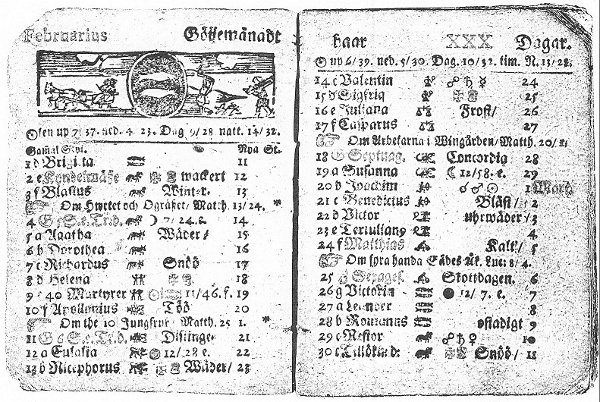 Februarius Göijemånadt
Solen up 7/37. ned. 4 23. Dag 9/28 natt. 14/32.
Gamal Styl. Nya St.
1 d Brigita 11
2 e Kyndelmässe wackert 12
3 f Blasius Winter. 13
Om Hwetet och Ogräset/ Matth. 13/24.
4 G 5 S. e Tr. D. 7/24. e. 14
5 a Agatha Wäder/ 15
6 b Dorothea 16
7 c Richardus Snöö 17
8 d Helena 18
9 e 40 Martyrer 11/46. f. 19
10 f Apollonius Töö 20
Om the 10 Jungfrur Matth. 25 1.
11 G 6 S. e Tr. D. 21
12 a Eulalia 12/28. e. 22
13 b Nicephorus Wäder/ 23
haar XXX Dagar.
up 6/39. ned. 5/30. Dag. 10/32. tim. N. 13/28.
14 c Valentin ☍ ♄ ☿ 24
15 d Sigfrid 25
16 e Juliana Frost/ 26
17 f Casparus 27
Om Arbetarna i Wingården/Matth. 20/
18 G Septuag. Concordia 28
19 a Susanna ☾ 12/58. e. 29
20 b Joachim ☍ ♂ ☉ 1 Mart.
21 c Benedictus Bläst/ 2
22 d Victor uhrwäder/ 3
23 e Tertulian9 4
24 f Matthias Kalt/ 5
Om fyra handa Sädes Åk. Luc: 8/4.
25 g Sexages. Skottdagen. 6
26 g Victorin ● 12/7. e. 7
27 a Leander 8
28 b Romanus ostadigt 9
29 c Nestor ☍ ♄ ♀ 10
30 c Tillökind: Snöö/ 11